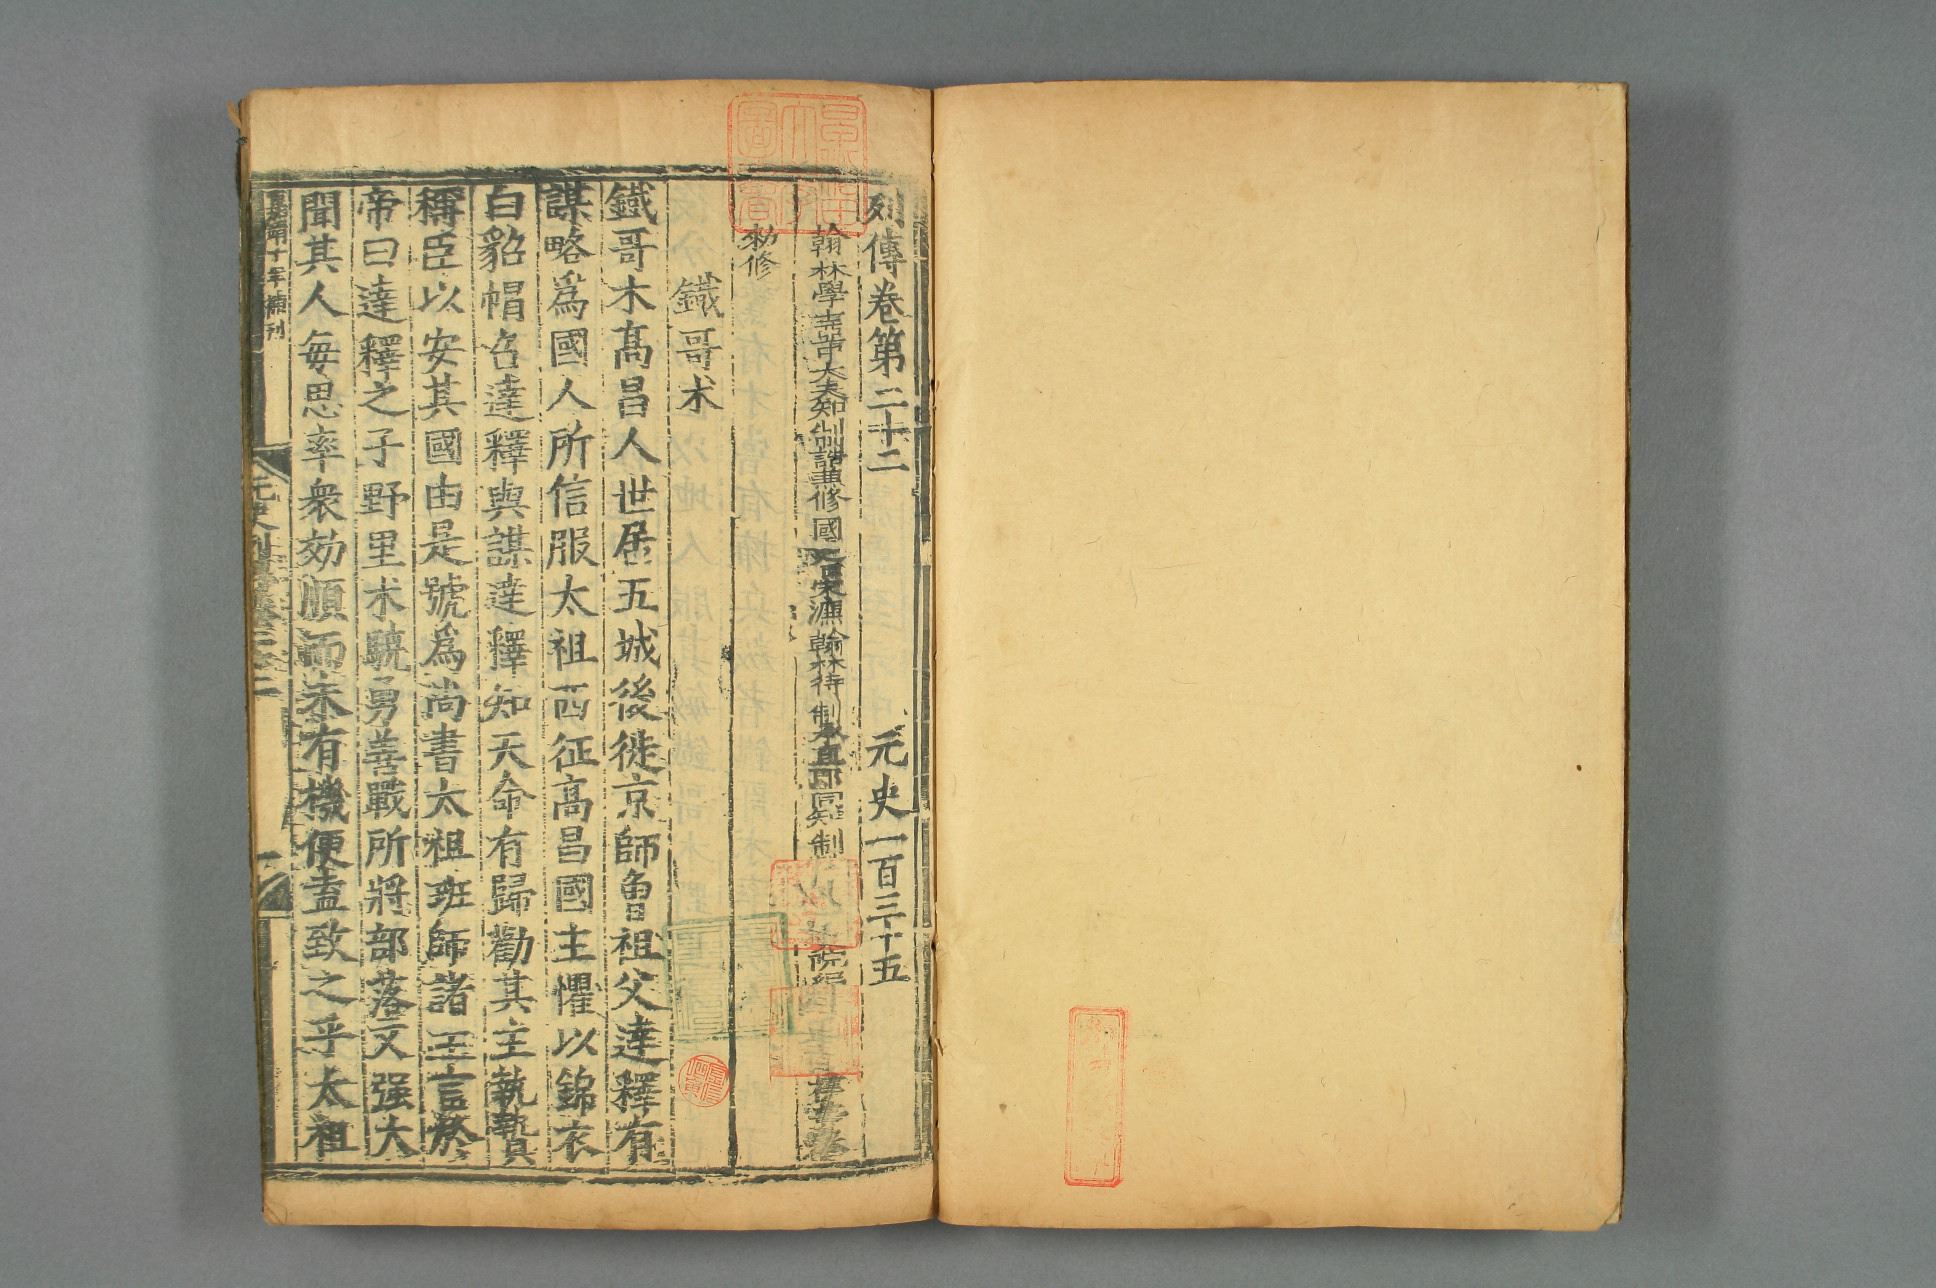 列傳卷第二十二 元史一百三十五
翰林學士亞中大夫知制誥兼修國史宋濂翰林待制承直郎同知制誥兼國史院編
勑修
鐵哥术
鐵哥术高昌人世居五城後徙京師魯祖父達釋有
謀略爲國人所信服太祖西征高昌國主懼以錦衣
白貂帽召達釋與謀達釋知天命有歸勸其主執贄
稱臣以安其國由是號爲尚書太祖班師諸王言於
帝曰達釋之子野里术驍勇善戰所將部落又强大
聞其人每思率衆効順而未有機便盍致之乎太祖
嘉靖十年補刊
元史列傳卷二十二